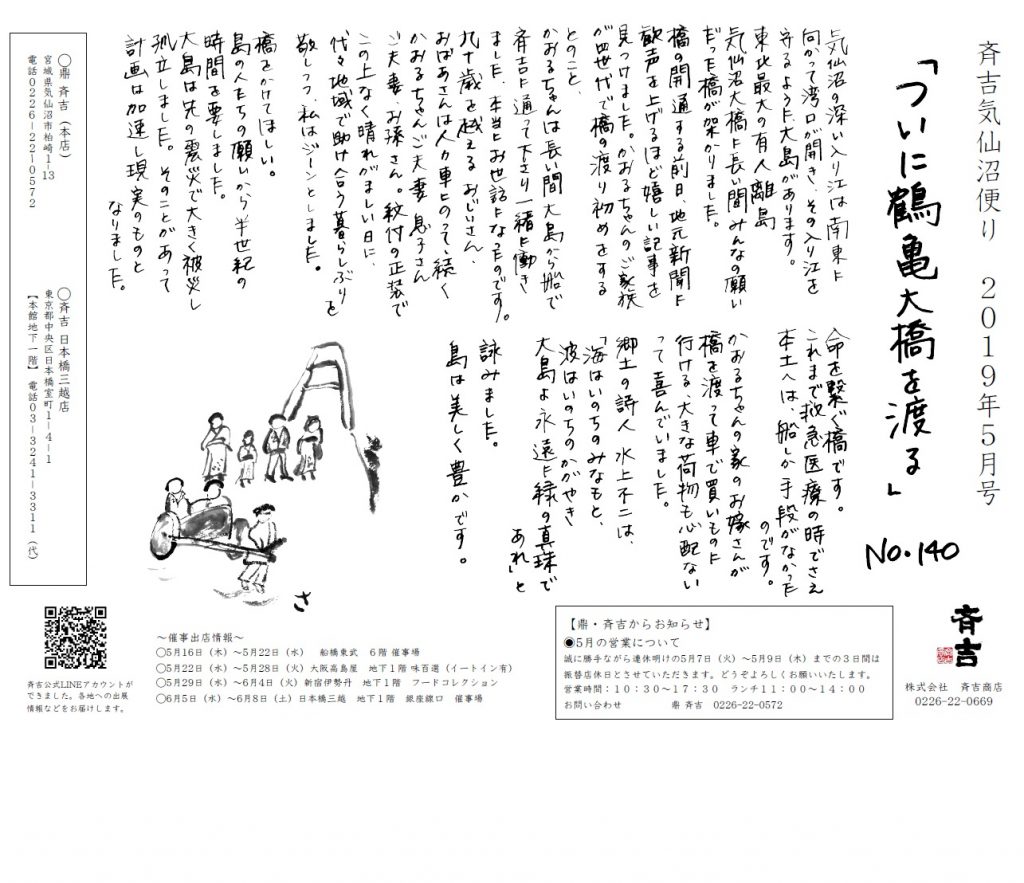 斉吉気仙沼便り　2019年5月号
「ついに鶴亀大橋を渡る」
No.140
気仙沼の深い入り江は南東に
向かって湾口が開き、その入り江を
守るように大島があります。
東北最大の有人離島
気仙沼大橋に長い間みんなの願い
だった橋が架かりました。
橋の開通する前日、地元新聞に
歓声を上げるほど嬉しい記事を
見つけました。かおるちゃんのご家族
が四世代で橋の渡り初めをする
とのこと、
かおるちゃんは長い間大島から船で
斉吉に通って下さり一緒に働き
ました、本当にお世話になったのです。
九十歳を越えるおじいさん、
おばあさんは人力車にのって、続く
かおるちゃんご夫妻、息子さん
ご夫妻、お孫さん。紋付の正装で
この上なく晴れがましい日に、
代々地域で助け合う暮らしぶりを
敬しつつ、私はジーンとしました。
橋をかけてほしい。
島の人たちの願いから半世紀の
時間を要しました。
大島は先の震災で大きく被災し
孤立しました。そのことがあって
計画は加速し現実のものと
なりました。
命を繋ぐ橋です。
これまで救急医療の時でさえ
本土へは、船しか手段がなかった
のです。
かおるちゃんの家のお嫁さんが
橋を渡って車で買いものに
行ける、大きな荷物も心配ない
って喜んでいました。
郷土の詩人　水上不二は、
「海はいのちのみなもと、
波はいのちのかがやき
大島よ永遠に緑の真珠で
あれ」と
詠みました。
島は美しく豊かです。
さ
◯鼎 斉吉（本店）
宮城県気仙沼市柏崎1-13
電話0226-22-0572
◯斉吉 日本橋三越店
東京都中央区日本橋室町1-4-1
【本館地下一階】 電話03-3241-3311（代）
斉吉公式LINEアカウントが
できました。各地への出展
情報などをお届けします。
～催事出店情報～
◯5月16日（木）～5月22日（水）　船橋東武　6階 催事場
◯5月22日（水）～5月28日（火）大阪高島屋　地下1階 味百選（イートイン有）
◯5月29日（水）～6月4日（火）新宿伊勢丹　地下1階　フードコレクション
◯6月5日（水）～6月8日（土）日本橋三越　地下1階　銀座線口　催事場
【鼎・斉吉からお知らせ】
◉5月の営業について
誠に勝手ながら連休明けの5月7日（火）～5月9日（木）までの3日間は
振替店休日とさせていただきます。どうぞよろしくお願いいたします。
営業時間：10：30～17：30　ランチ11：00～14：00
お問い合わせ　　　　鼎 斉吉　0226-22-0572
斉吉
株式会社　斉吉商店
0226-22-0669